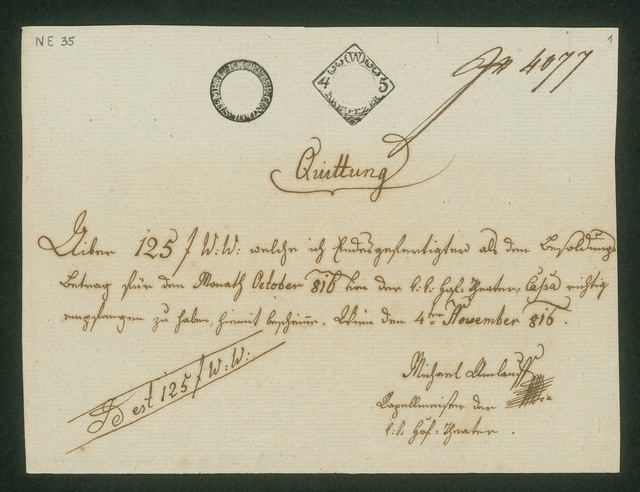 NE 35
1
№ 4077
45
KREUTZER
Quittung
Uiber 125 f W: W: welche ich Endesgefertigter als den Besoldungs
Betrag für den Monath October 816 von der k: k: Hof=Theater=Cassa richtig
empfangen zu haben, hiemit bescheine. Wien den 4ten November 816.
Michael Umlauff
Kapellmeister der
k: k Hof=Theater.
Dest 125 f W: W: